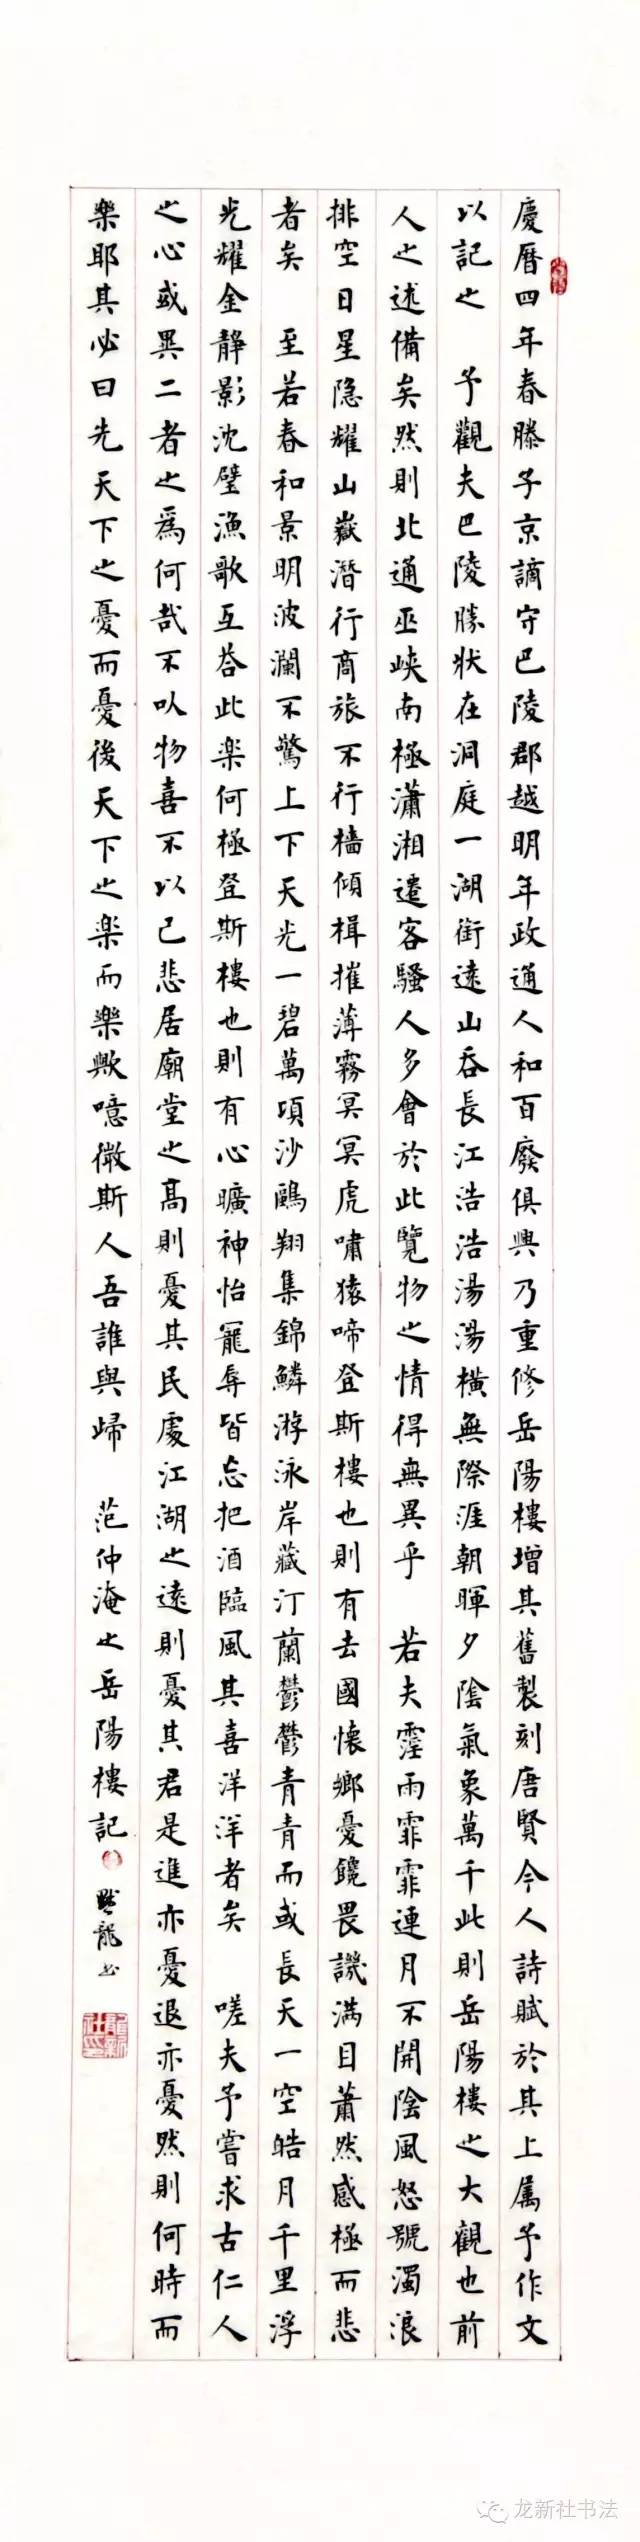 慶曆四年春滕子京謫守巴陵郡越明年政通人和百廢俱興乃重修岳陽樓增其舊製刻唐賢今人詩賦於其上属予作文
以記之 予觀夫巴陵勝狀在洞庭一湖銜遠山吞長江浩浩湯湯橫無際涯朝暉夕陰氣象萬千此則岳陽樓之大觀也前
人之述備矣然則北通巫峽南極瀟湘遷客騷人多會於此覽物之情得無異乎 若夫霪雨霏霏連月不開陰風怒號濁浪
排空日星隐耀山嶽潛行商旅不行檣傾楫摧薄霧冥冥虎嘯猿啼登斯樓也則有去國懷鄉憂饞畏譏满目蕭然感極而悲
者矣 至若春和景明波瀾不驚上下天光一碧萬頃沙鷗翔集錦鱗游泳岸藏汀蘭鬱鬱青青而或長天一空皓月千里浮
光耀金靜影沈璧漁歌互荅此楽何極登斯樓也則有心曠神怡寵辱皆忘把酒臨風其喜洋洋者矣 嗟夫予嘗求古仁人
之心或異二者之為何哉不以物喜不以己悲居廟堂之高則憂其民處江湖之遠則憂其君是進亦憂退亦憂然則何時而
樂耶其必曰先天下之憂而憂後天下之楽而樂歟噫微斯人吾誰與歸 范仲淹之岳陽樓記
龍新社印
龙新社书法